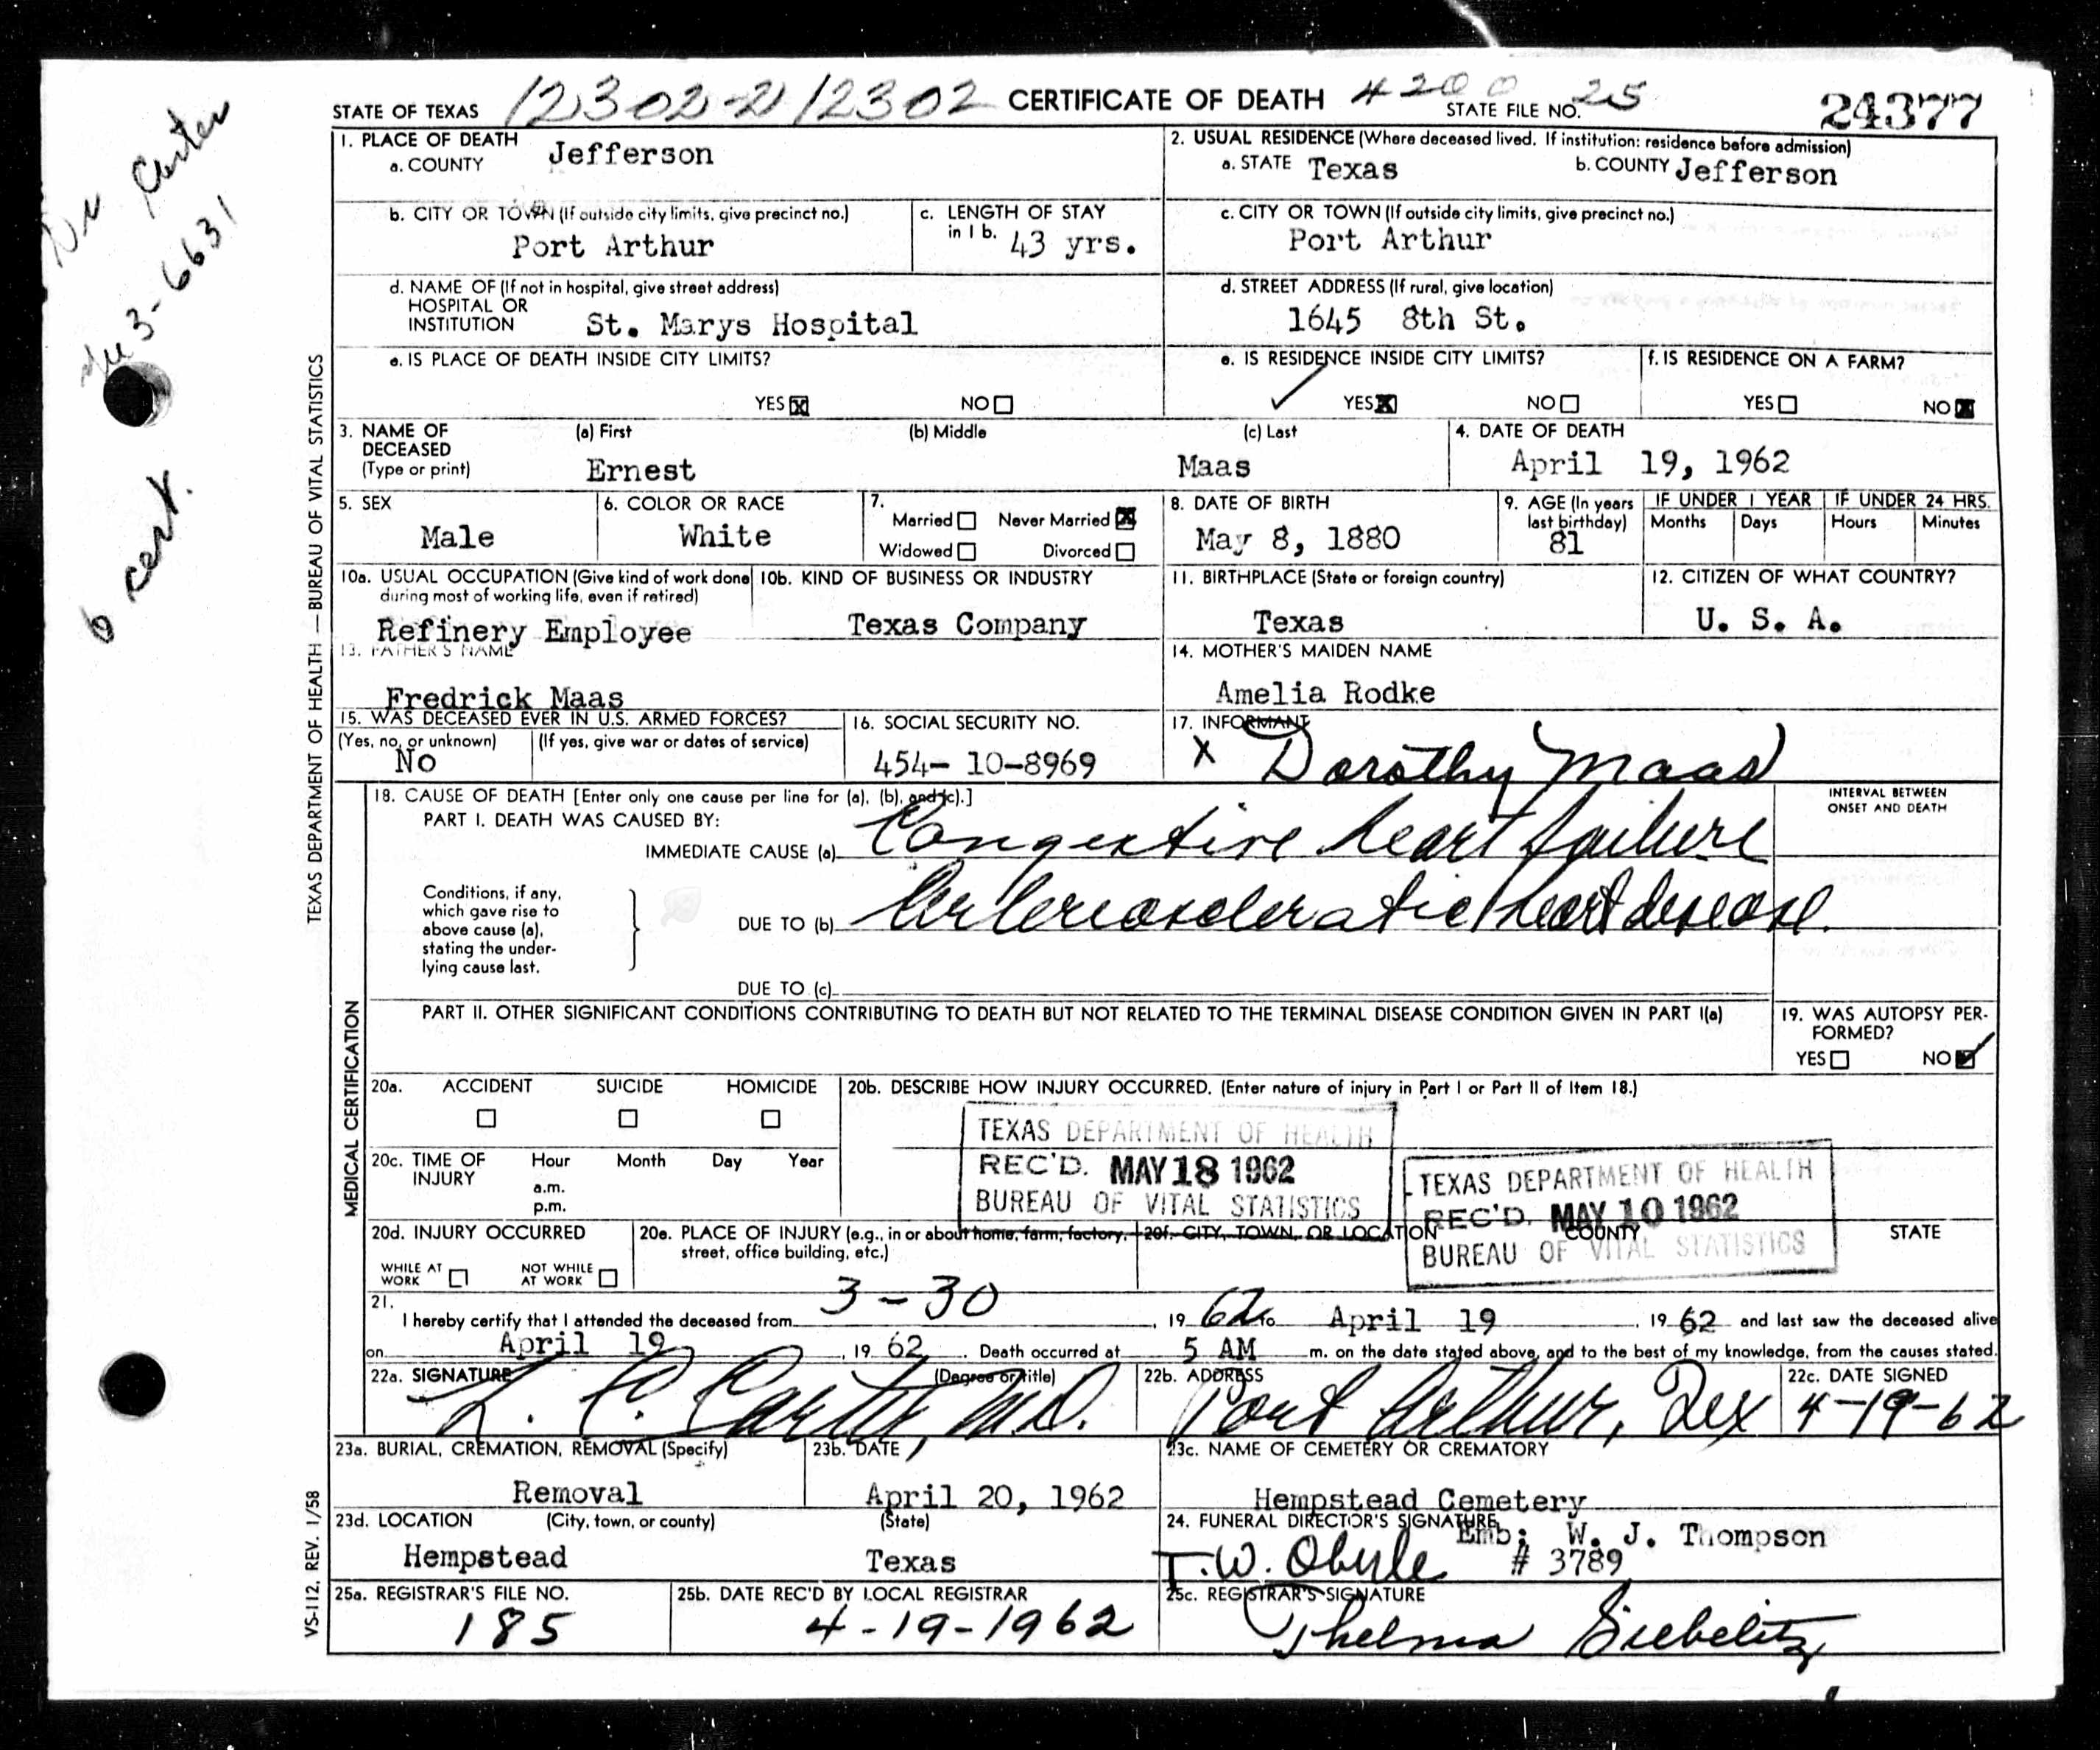 STATE OF TEXAS 12302-2 12302 CERTIFICATE OF DEATH 4200 STATE FILE NO. 25 24377
Dr Carter
6 cert.
TEXAS DEPARTMENT OF HEALTH — BUREAU OF VITAL STATISTICS
1. PLACE OF DEATH
a. COUNTY Jefferson
2. USUAL RESIDENCE (Where deceased lived. If institution: residence before admission)
a. STATE Texas b. COUNTY Jefferson
b. CITY OR TOWN (If outside city limits, give precinct no.)
Port Arthur
c. LENGTH OF STAY
in 1 b. 43 yrs.
c. CITY OR TOWN (If outside city limits, give precinct no.)
Port Arthur
d. NAME OF (If not in hospital, give street address)
HOSPITAL OR
INSTITUTION St. Marys Hospital
d. STREET ADDRESS (If rural, give location)
1645 8th St.
e. IS PLACE OF DEATH INSIDE CITY LIMITS?
YES X NO
e. IS RESIDENCE INSIDE CITY LIMITS?
✓ YES X NO
f. IS RESIDENCE ON A FARM?
YES NO X
3. NAME OF DECEASED (Type or print)
(a) First (b) Middle (c) Last
Ernest Maas
4. DATE OF DEATH
April 19, 1962
5. SEX
Male
6. COLOR OR RACE
White
7.
Married Never Married X
Widowed Divorced
8. DATE OF BIRTH
May 8, 1880
9. AGE (In years last birthday)
81
IF UNDER 1 YEAR
Months Days
IF UNDER 24 HRS.
Hours Minutes
10a. USUAL OCCUPATION (Give kind of work done
during most of working life, even if retired)
Refinery Employee
10b. KIND OF BUSINESS OR INDUSTRY
Texas Company
11. BIRTHPLACE (State or foreign country)
Texas
12. CITIZEN OF WHAT COUNTRY?
U. S. A.
13. FATHER'S NAME
Fredrick Maas
14. MOTHER'S MAIDEN NAME
Amelia Rodke
15. WAS DECEASED EVER IN U.S. ARMED FORCES?
(Yes, no, or unknown) (If yes, give war or dates of service)
No
16. SOCIAL SECURITY NO.
454- 10-8969
17. INFORMANT
X Dorothy Maas
MEDICAL CERTIFICATION
18. CAUSE OF DEATH [Enter only one cause per line for (a), (b), and (c).]
PART I. DEATH WAS CAUSED BY:
IMMEDIATE CAUSE (a) Congestive heart failure
INTERVAL BETWEEN
ONSET AND DEATH
Conditions, if any,
which gave rise to
above cause (a),
stating the under-
lying cause last.
DUE TO (b) Arteriosclerotic heart disease.
DUE TO (c)
PART II. OTHER SIGNIFICANT CONDITIONS CONTRIBUTING TO DEATH BUT NOT RELATED TO THE TERMINAL DISEASE CONDITION GIVEN IN PART I(a)
19. WAS AUTOPSY PER-
FORMED?
YES NO ✓
20a. ACCIDENT SUICIDE HOMICIDE
20b. DESCRIBE HOW INJURY OCCURRED. (Enter nature of injury in Part I or Part II of Item 18.)
TEXAS DEPARTMENT OF HEALTH
REC'D. MAY 18 1962
BUREAU OF VITAL STATISTICS
TEXAS DEPARTMENT OF HEALTH
REC'D. MAY 10 1962
BUREAU OF VITAL STATISTICS
20c. TIME OF INJURY
Hour Month Day Year
a.m.
p.m.
20d. INJURY OCCURRED
WHILE AT WORK NOT WHILE AT WORK
20e. PLACE OF INJURY (e.g., in or about home, farm, factory,
street, office building, etc.)
20f. CITY, TOWN, OR LOCATION COUNTY STATE
21.
I hereby certify that I attended the deceased from 3-30, 19 62 to April 19, 19 62 and last saw the deceased alive
on April 19, 19 62. Death occurred at 5 AM m. on the date stated above, and to the best of my knowledge, from the causes stated.
22a. SIGNATURE (Degree or title)
L. C. Carter, M.D.
22b. ADDRESS
Port Arthur, Tex
22c. DATE SIGNED
4-19-62
23a. BURIAL, CREMATION, REMOVAL (Specify)
Removal
23b. DATE
April 20, 1962
23c. NAME OF CEMETERY OR CREMATORY
Hempstead Cemetery
23d. LOCATION (City, town, or county) (State)
Hempstead Texas
24. FUNERAL DIRECTOR'S SIGNATURE
Emb; W. J. Thompson
T. W. Oberle # 3789
25a. REGISTRAR'S FILE NO.
185
25b. DATE REC'D BY LOCAL REGISTRAR
4-19-1962
25c. REGISTRAR'S SIGNATURE
Thelma Siebelitz
VS-112, REV. 1/58